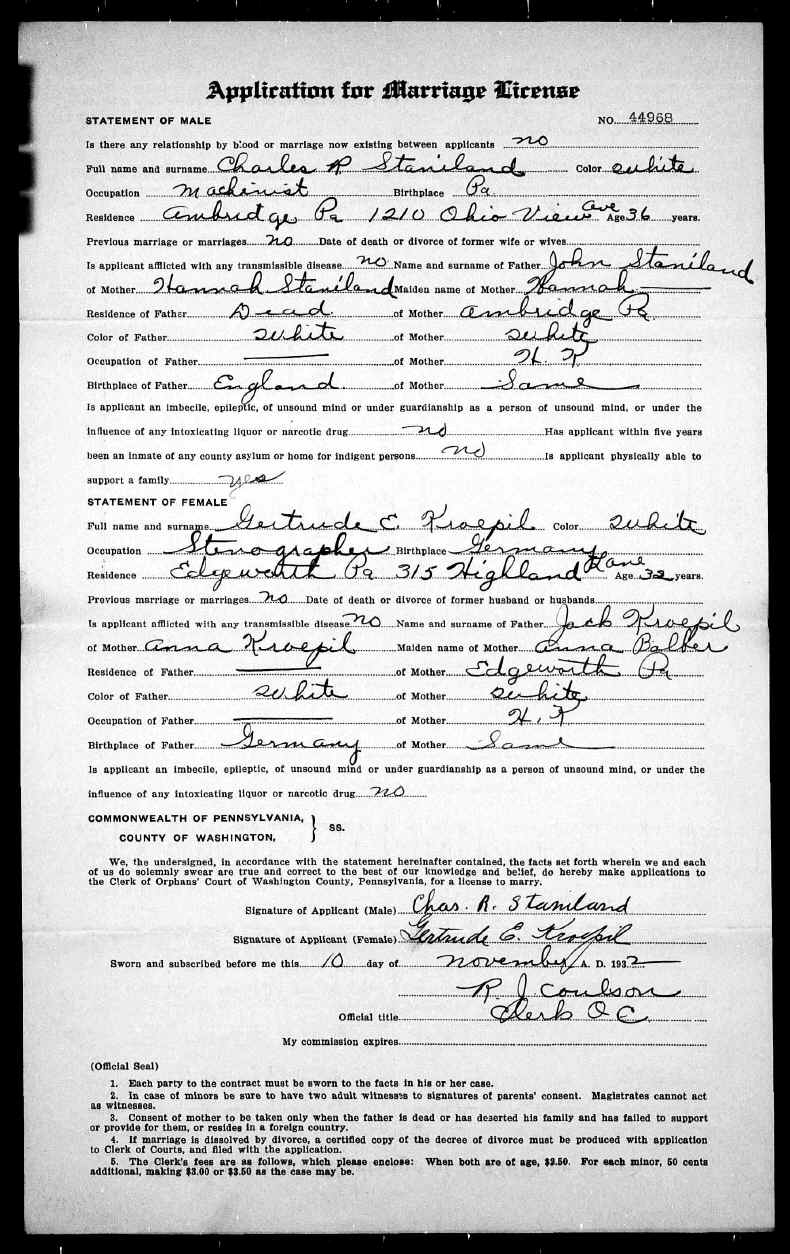 Application for Marriage License
STATEMENT OF MALE NO. 44968
Is there any relationship by blood or marriage now existing between applicants no
Full name and surname Charles R Staniland Color white
Occupation Machinist Birthplace Pa
Residence Ambridge Pa 1210 Ohio View Ave Age 36 years.
Previous marriage or marriages no Date of death or divorce of former wife or wives
Is applicant afflicted with any transmissible disease no Name and surname of Father John Staniland
of Mother Hannah Staniland Maiden name of Mother Hannah —
Residence of Father Dead of Mother Ambridge Pa
Color of Father white of Mother white
Occupation of Father — of Mother H. K
Birthplace of Father England of Mother Same
Is applicant an imbecile, epileptic, of unsound mind or under guardianship as a person of unsound mind, or under the
influence of any intoxicating liquor or narcotic drug no Has applicant within five years
been an inmate of any county asylum or home for indigent persons no Is applicant physically able to
support a family yes
STATEMENT OF FEMALE
Full name and surname Gertrude E. Kroepil Color white
Occupation Stenographer Birthplace Germany
Residence Edgeworth Pa 315 Highland Lane Age 32 years.
Previous marriage or marriages no Date of death or divorce of former husband or husbands
Is applicant afflicted with any transmissible disease no Name and surname of Father Jack Kroepil
of Mother Anna Kroepil Maiden name of Mother Anna Balber
Residence of Father — of Mother Edgeworth Pa
Color of Father white of Mother white
Occupation of Father — of Mother H. K
Birthplace of Father Germany of Mother Same
Is applicant an imbecile, epileptic, of unsound mind or under guardianship as a person of unsound mind, or under the
influence of any intoxicating liquor or narcotic drug no
COMMONWEALTH OF PENNSYLVANIA,
COUNTY OF WASHINGTON, } SS.
We, the undersigned, in accordance with the statement hereinafter contained, the facts set forth wherein we and each
of us do solemnly swear are true and correct to the best of our knowledge and belief, do hereby make applications to
the Clerk of Orphans' Court of Washington County, Pennsylvania, for a license to marry.
Signature of Applicant (Male) Chas. R. Staniland
Signature of Applicant (Female) Gertrude E. Kroepil
Sworn and subscribed before me this 10 day of November A. D. 1932
R. J. Coulson
Official title Clerk O C.
My commission expires
(Official Seal)
1. Each party to the contract must be sworn to the facts in his or her case.
2. In case of minors be sure to have two adult witnesses to signatures of parents' consent. Magistrates cannot act
as witnesses.
3. Consent of mother to be taken only when the father is dead or has deserted his family and has failed to support
or provide for them, or resides in a foreign country.
4. If marriage is dissolved by divorce, a certified copy of the decree of divorce must be produced with application
to Clerk of Courts, and filed with the application.
5. The Clerk's fees are as follows, which please enclose: When both are of age, $2.50. For each minor, 50 cents
additional, making $3.00 or $3.50 as the case may be.